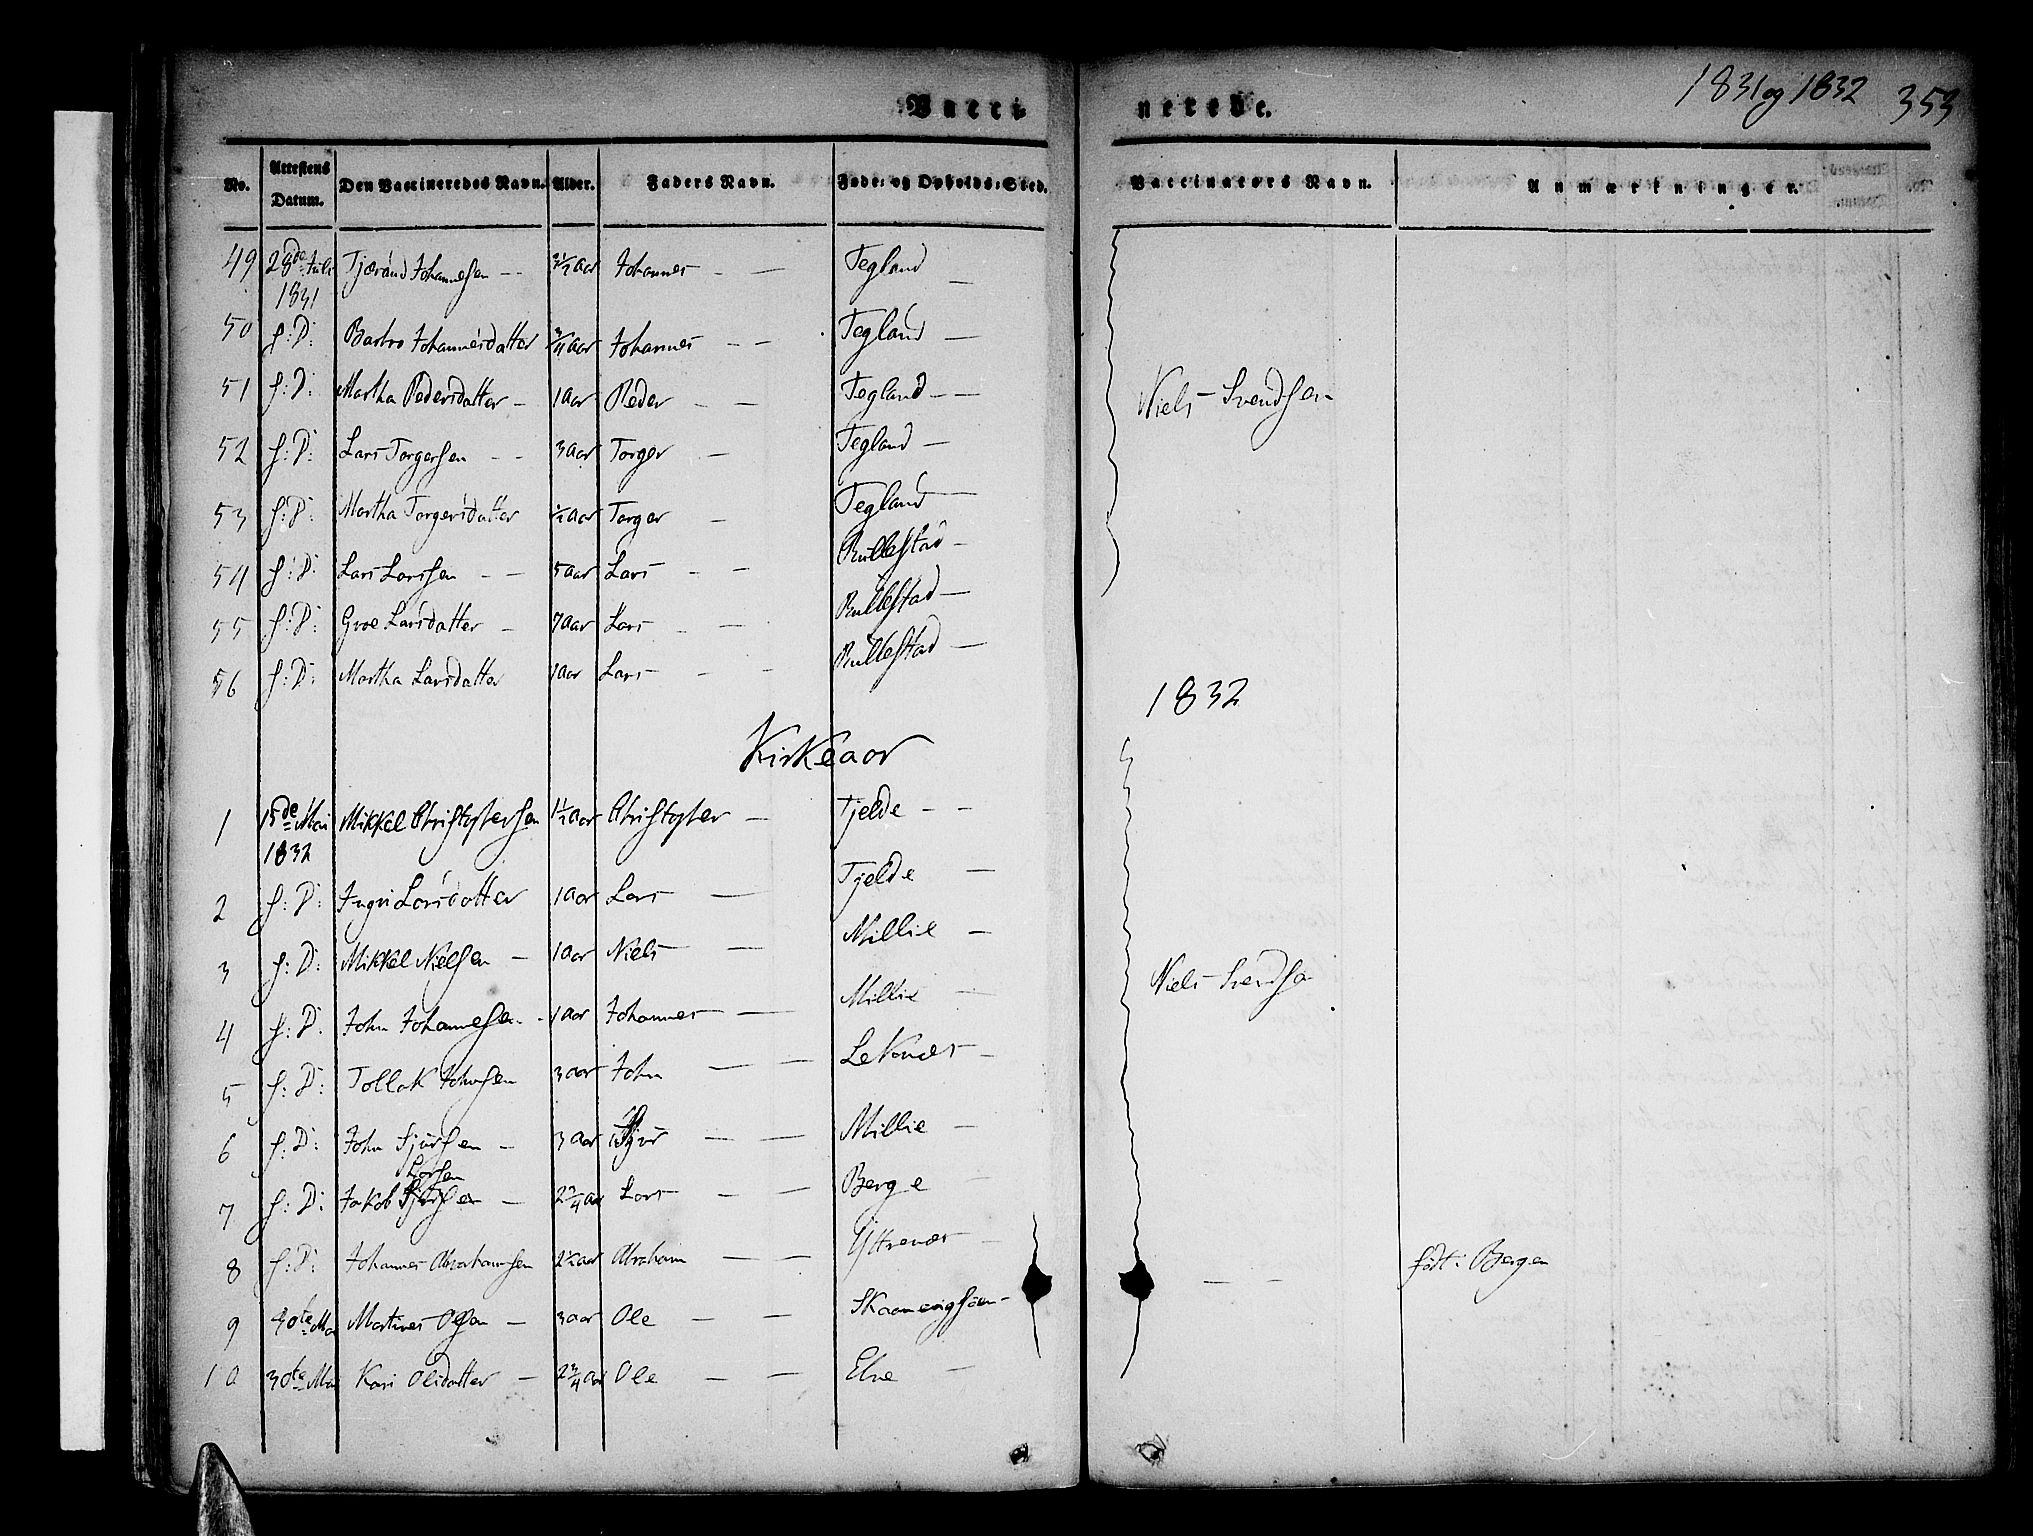 Vacci nerede.
1831 og 1832 353
No. Attestens Datum. Den Vaccineredes Navn. Alder. Faders Navn. Føde- og Opholds-Sted. Vaccinators Navn. Anmærkninger.
49 28de Juli 1831 Tjerand Johannesen - - Aar Johannes - - Tegland -
50 s: D: Barbro Johannesdatter 3/4 Aar Johannes - - Tegland -
51 s: D: Martha Pedersdatter - 1 Aar Peder - - Tegland - - Niels Svendsen
52 s: D: Lars Torgersen - - 3 Aar Torger - Tegland -
53 s: D: Martha Torgersdatter 1/2 Aar Torger - Tegland -
54 s: D: Lars Larssen - - 5 Aar Lars - - Rullestad -
55 s: D: Groe Larsdatter - 7 Aar Lars - - Rullestad -
56 s: D: Martha Larsdatter 1 Aar Lars - - Rullestad -
Kirkeaar 1832
1 15de Mai 1832 Mikkel Christophersen 1 1/2 Aar Christopher - Tjelde - -
2 s: D: Ingri Larsdatter 1 Aar Lars - - Tjelde -
3 s: D: Mikkel Nielsen - 1 Aar Niels - Millie -
4 s: D: John Johannesen - 1 Aar Johannes - Millie - Niels Svendsen
5 s: D: Tollak Johnsen 3 Aar John - - Leknæs -
6 s: D: John Sjursen - 3 Aar Sjur - - Millie -
7 s: D: Jakob Larsen - 2 3/4 Aar Lars - - Berge
8 s: D: Johannes Abrahamsen 2 1/2 Aar Abraham - - Yttrenæs - - - født i Bergen
9 30te Mai Martines Olsen - 3 Aar Ole - - -
10 30te Mai Kari Olsdatter - 2 3/4 Aar Ole - - Elve -